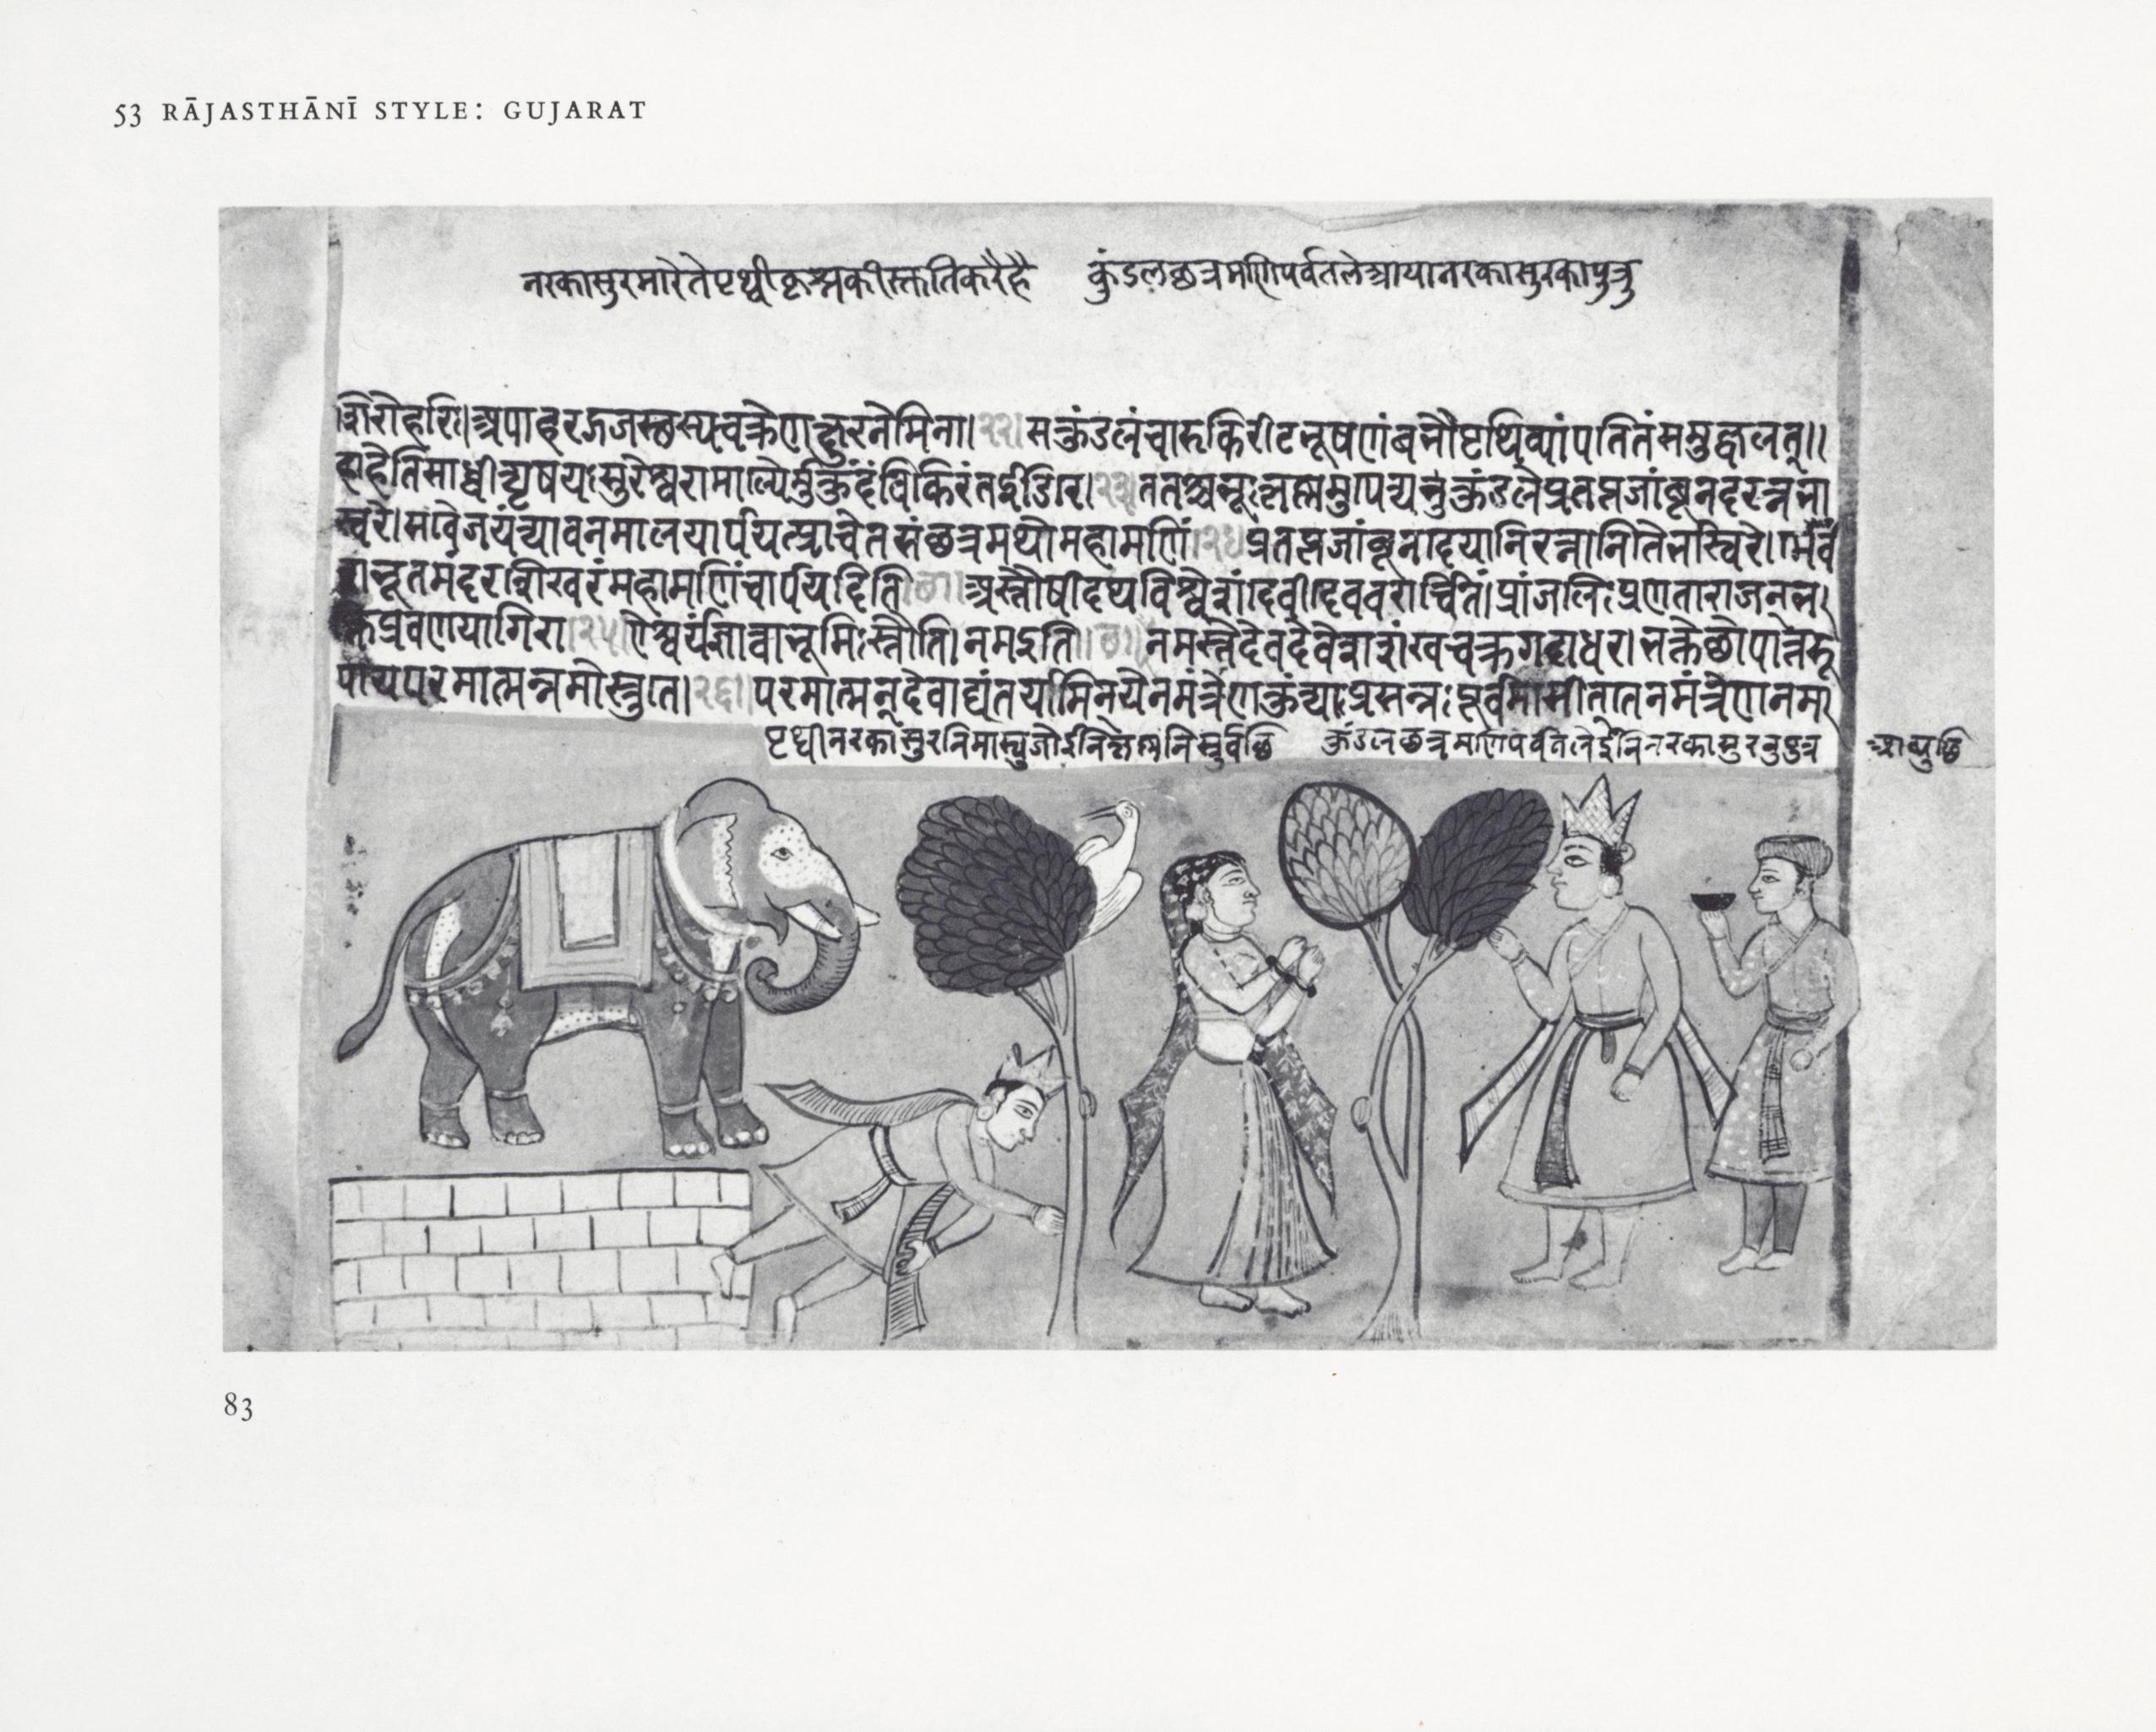 53 RĀJASTHĀNĪ STYLE: GUJARAT
नरकासुरमारेतेपृथ्वीकृष्नकीस्तुतिकरैहै कुंडलछत्रमणिपर्वतलेआयानरकासुरकापुत्रु
शिरोहरिः।अपाहर चक्रेणक्षुरनेमिना।२२। सकुंडलंचारुकिरीटभूषणंबभौपृथिव्यांपतितंसमुज्वलत्।।
हाहेतिसाध्वीत्यृषयःसुरेश्वरामाल्यैर्मुकुंदंविकिरंतईडिरे।२३।ततश्चभूः कुंडलेप्रतप्तजांबूनदरत्नभा
स्वरे।सवैजयंत्यावनमालयार्पयत्प्राचेतसंछत्रमथोमहामणिं।२४।प्रतप्तजांबूनदे रत्नानि
मंदर महामणिंचार्पयदिति।छ।।अस्तौषीदथविश्वेशंदेवीदेववरार्चितं।प्रांजलिःप्रणताराजन्भ
क्तिप्रवणयाधिया।२५।ऐश्वर्यं भूमिःस्तौति।नमइति।।छ।।नमस्तेदेवदेवेशशंखचक्रगदाधर।भक्तेछोपात्तरू
पायपरमात्मन्नमोस्तुते।२६।परमात्मन् नमंत्रेणकुंत्याःप्रसन्नःपूर्वमासीत्तातनमंत्रेणनमा
पृथ्वीनरकासुरनि कुंडलछत्रमणिपर्वतलेईनिनरकासुरनुपुत्र
83